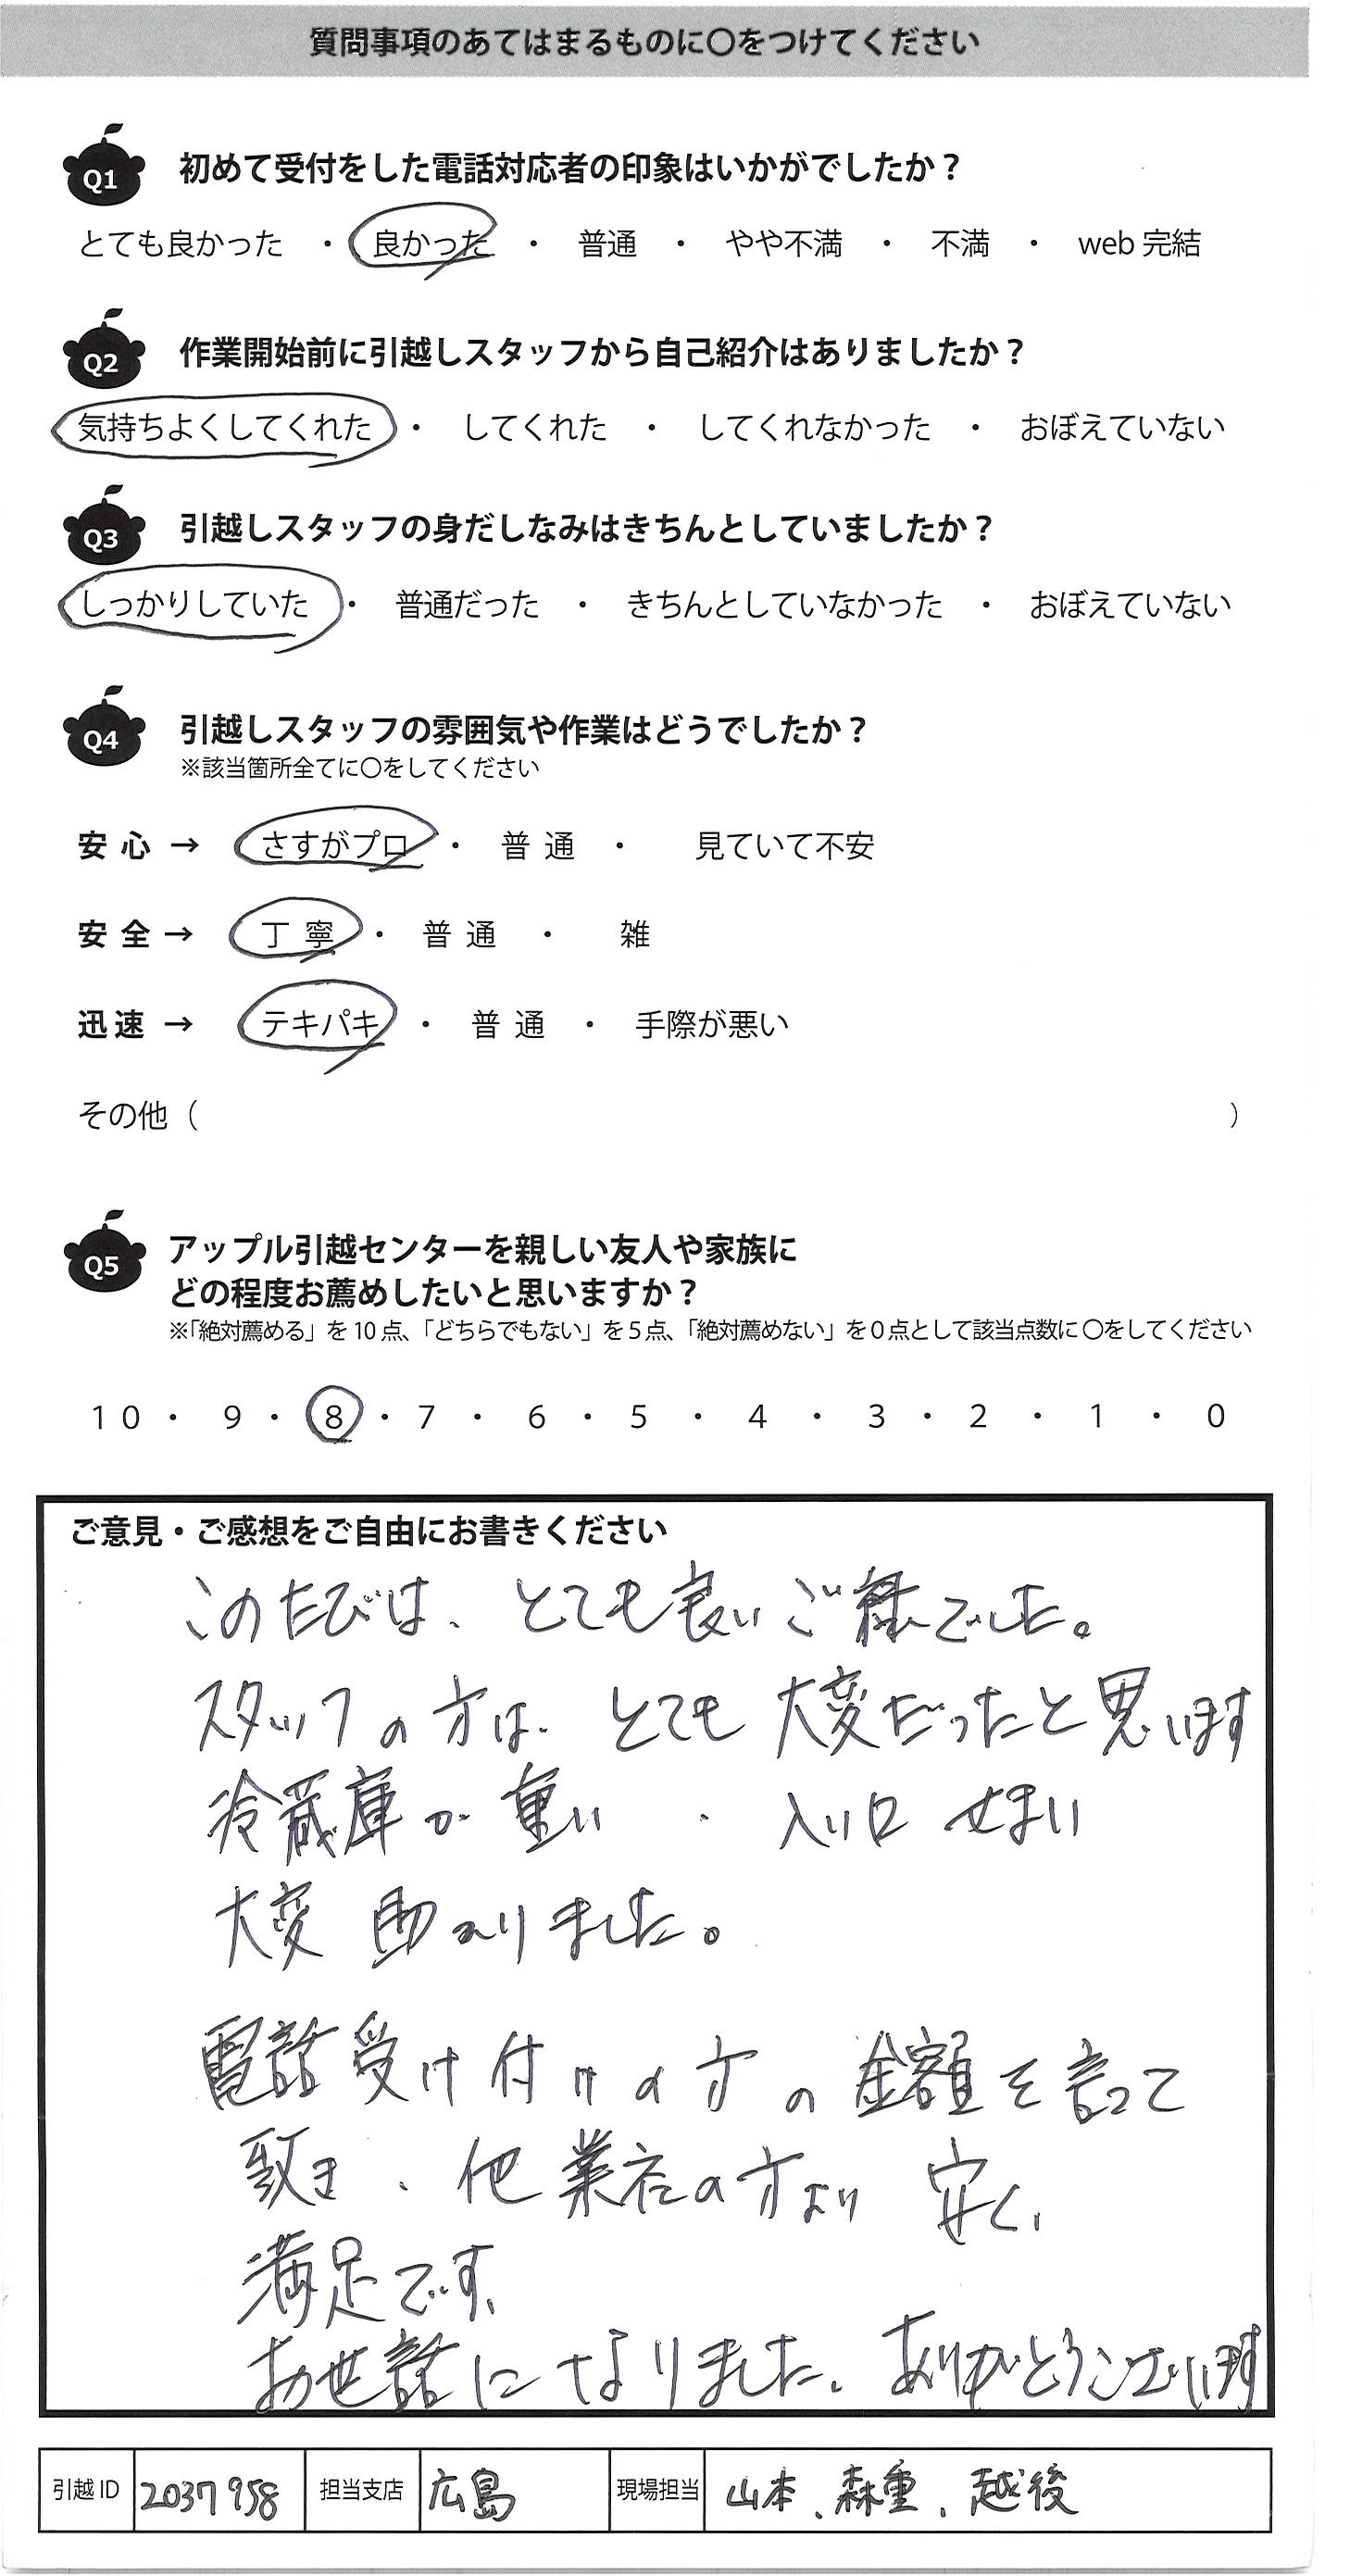 質問事項のあてはまるものに〇をつけてください
Q1 初めて受付をした電話対応者の印象はいかがでしたか？
とても良かった ・ 良かった ・ 普通 ・ やや不満 ・ 不満 ・ web 完結
Q2 作業開始前に引越しスタッフから自己紹介はありましたか？
気持ちよくしてくれた ・ してくれた ・ してくれなかった ・ おぼえていない
Q3 引越しスタッフの身だしなみはきちんとしていましたか？
しっかりしていた ・ 普通だった ・ きちんとしていなかった ・ おぼえていない
Q4 引越しスタッフの雰囲気や作業はどうでしたか？
※該当箇所全てに〇をしてください
安心 → さすがプロ ・ 普通 ・ 見ていて不安
安全 → 丁寧 ・ 普通 ・ 雑
迅速 → テキパキ ・ 普通 ・ 手際が悪い
その他（ ）
Q5 アップル引越センターを親しい友人や家族に
どの程度お薦めしたいと思いますか？
※「絶対薦める」を 10 点、「どちらでもない」を 5 点、「絶対薦めない」を 0 点として該当点数に 〇をしてください
10 ・ 9 ・ 8 ・ 7 ・ 6 ・ 5 ・ 4 ・ 3 ・ 2 ・ 1 ・ 0
ご意見・ご感想をご自由にお書きください
このたびは、とても良いご縁でした。
スタッフの方は、とても大変だったと思います
冷蔵庫が重い、入り口せまい
大変助かりました。
電話受け付けの方の金額を言って
頂き、他業社の方より安く、
満足です、
お世話になりました、ありがとうございます
引越 ID 2037958 担当支店 広島 現場担当 山本、森重、越後